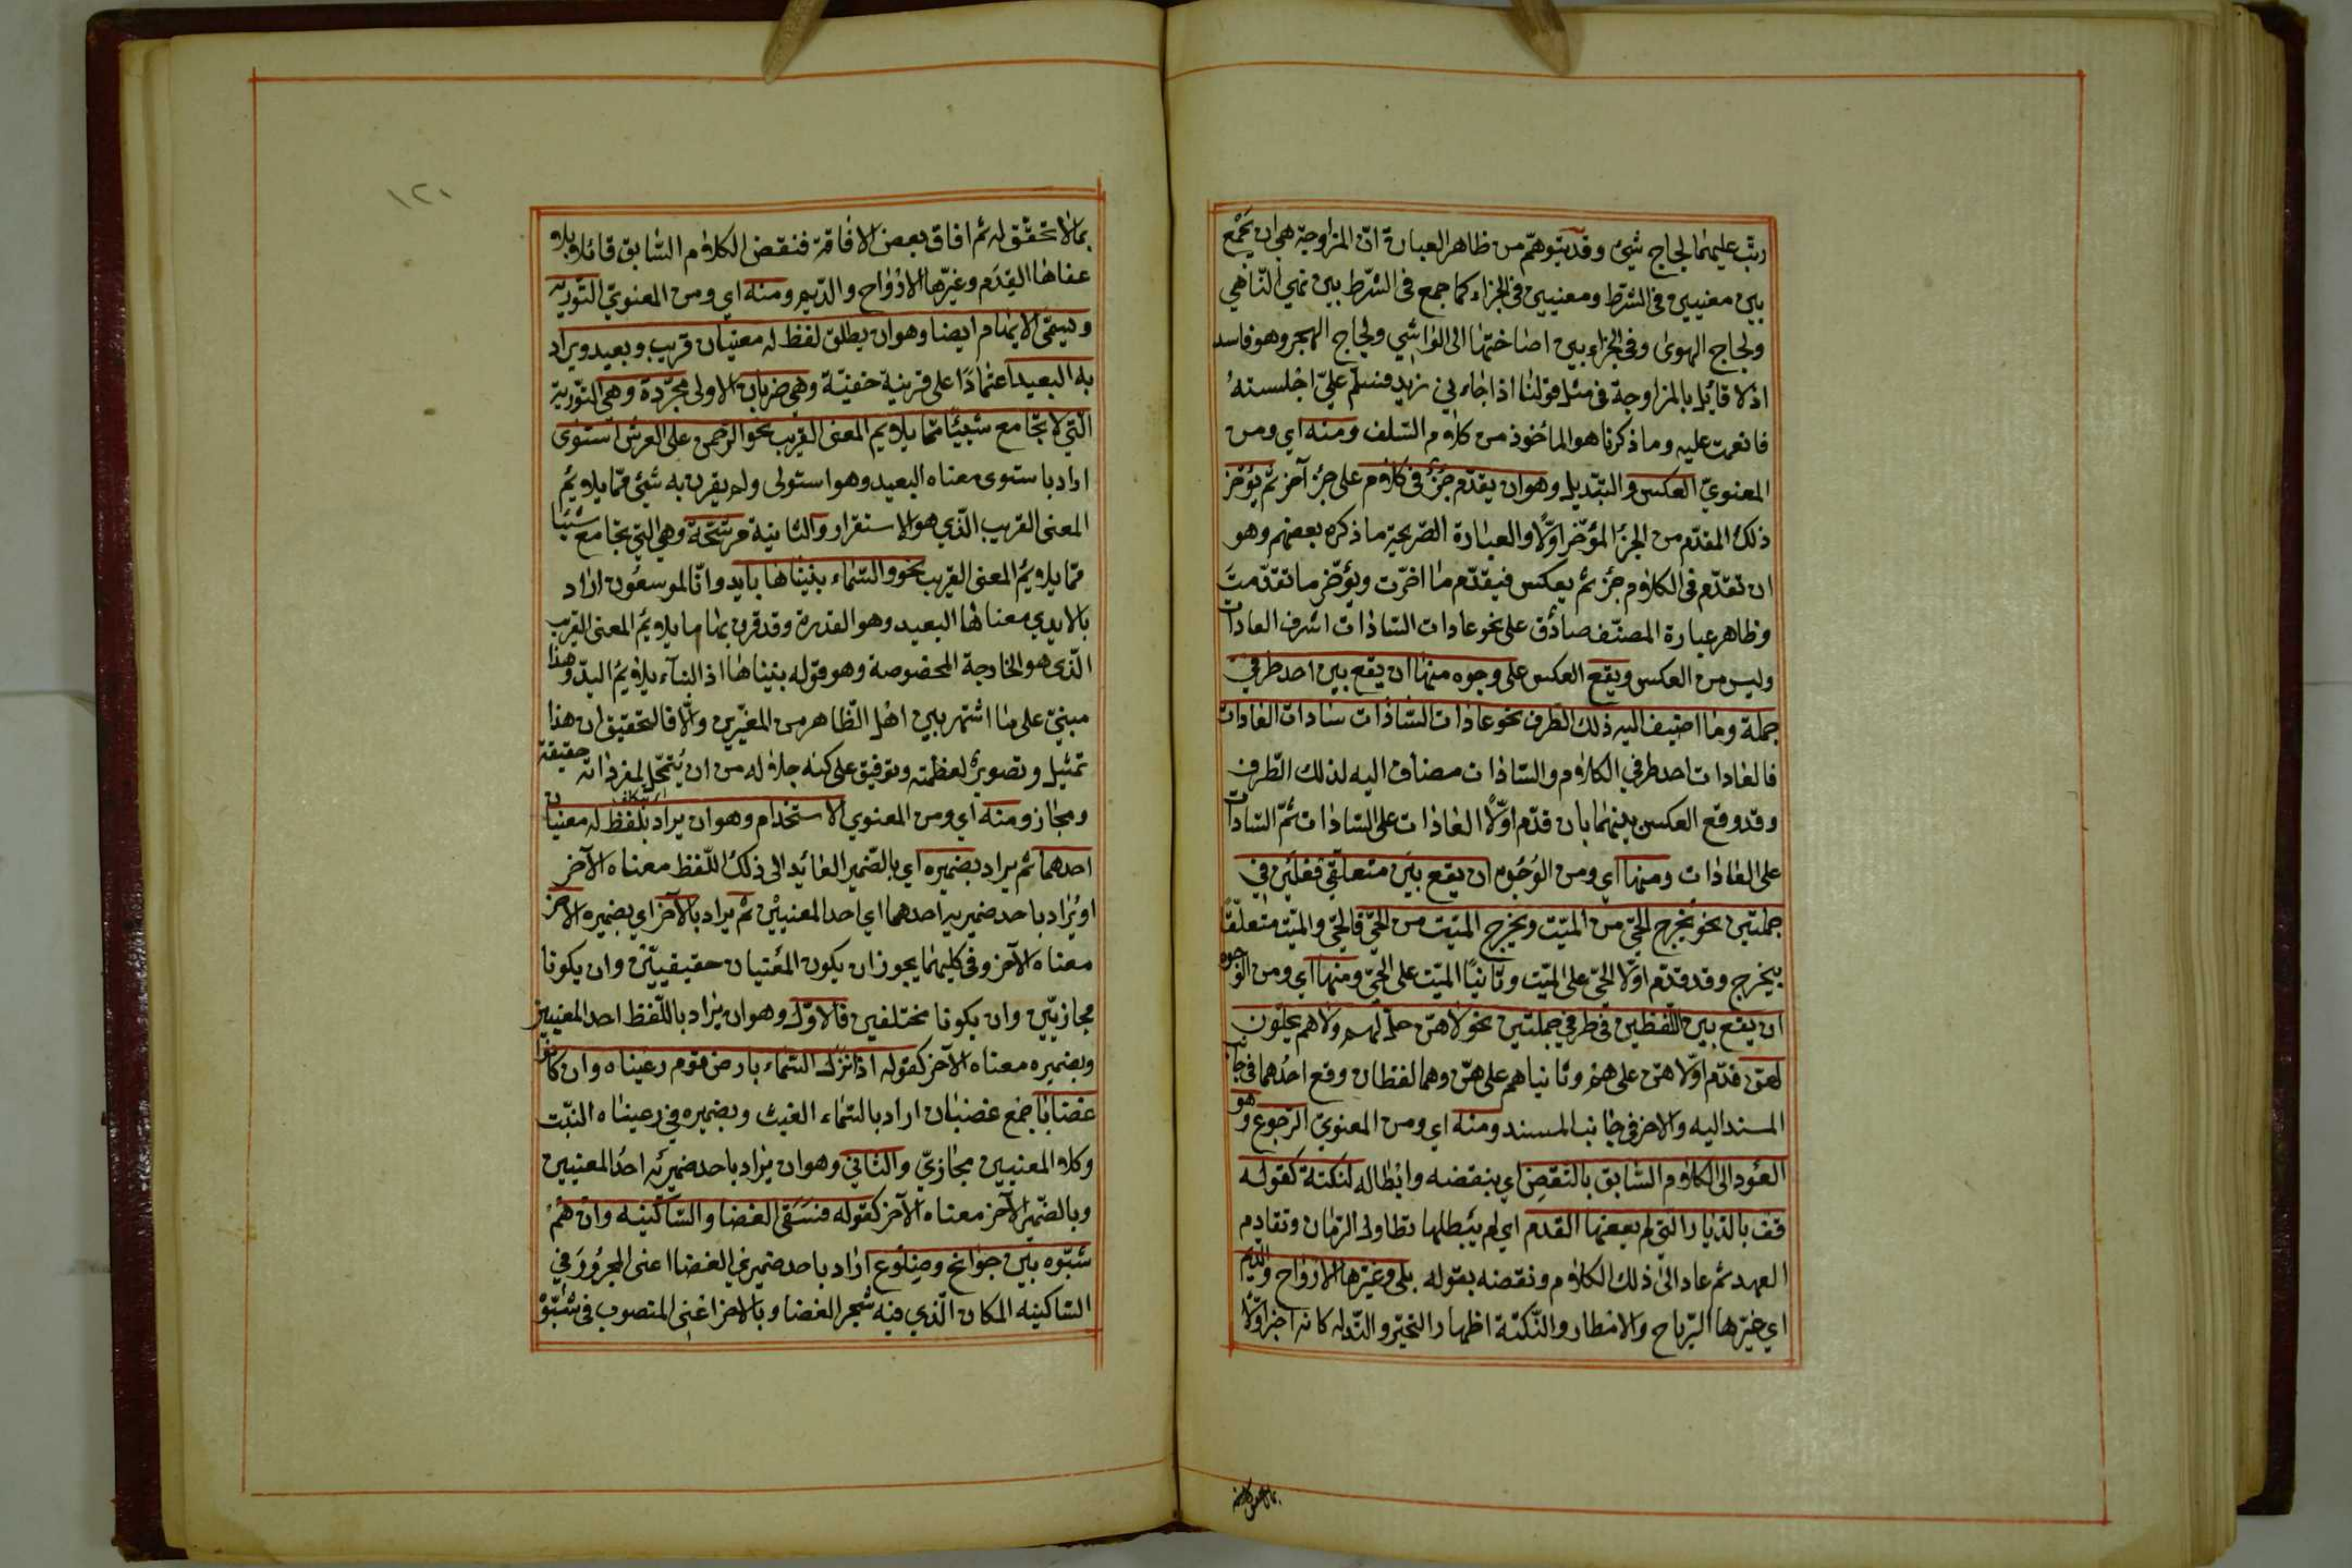 رتب عليهما لجاج شيئ وقد يتوهم من ظاهر العبارة ان المزاوجة هي ان يجمع
بين معنيين في الشرط ومعنيين في الجزاء كما جمع في الشرط بين نهي الناهي
ولجاج الهوى وفي الجزاء بين اصاختها الى الواشي ولجاج الهجر وهو فاسد
اذ لا قائل بالمزاوجة في مثل قولنا اذا جاء ني زيد فسلم علي اجلسته
فانعمت عليه وما ذكرنا هو المأخوذ من كلام السلف ومنه اي ومن
المعنوي العكس والتبديل وهو ان يقدم جزؤ في كلام على جزء آخر ثم يؤخر
ذلك المقدم من الجزء المؤخر اولا والعبارة الصريحة ما ذكره بعضهم وهو
ان تقدم في الكلام جزء ثم يعكس فيقدم ما اخرت ويؤخر ما تقدمت
وظاهر عبارة المصنف صادق على نحو عادات السادات اشرف العادات
وليس من العكس ويقع العكس على وجوه منها ان يقع بين احد طرفي
جملة وما اضيف اليه ذلك الطرف نحو عادات السادات سادات العادات
فالعادات احد طرفي الكلام والسادات مضاف اليه لذلك الطرف
وقد وقع العكس بينهما بان قدم اولا العادات على السادات ثم السادات
على العادات ومنها اي ومن الوجوه ان يقع بين متعلقي فعلين في
جملتين نحو يخرج الحي من الميت ويخرج الميت من الحي فالحي والميت متعلقا
بيخرج وقد قدم اولا الحي على الميت وثانيا الميت على الحي ومنها اي ومن الوجوه
ان يقع بين اللفظين في طرفي جملتين نحو لا هن حل لهم ولا هم يحلون
لهن قدم اولا هن على هم وثانيا هم على هن وهما لفظان وقع احدهما في جانب
المسند اليه والاخر في جانب المسند ومنه اي ومن المعنوي الرجوع وهو
العود الى الكلام السابق بالنقض اي بنقضه وابطاله لنكتة كقوله
قف بالديار التي لم يعفها القدم اي لم يبطلها تطاول الزمان وتقادم
العهد ثم عاد الى ذلك الكلام ونقضه بقوله بلى وغيرها الارواح والديم
اي غيرها الرياح والامطار والنكتة اظهار التحير والتدله كانه اخبر اولا
بما لا تحقق له ثم افاق بعض الافاقة فنقض الكلام السابق قائلا بلى
عفاها القدم وغيرها الارواح والديم ومنه اي ومن المعنوي التورية
ويسمى الايهام ايضا وهو ان يطلق لفظ له معنيان قريب وبعيد ويراد
به البعيد اعتمادا على قرينة خفية وهي ضربان الاولى مجردة وهي التورية
التي لا تجامع شيئا مما يلايم المعنى القريب نحو الرحمن على العرش استوى
اراد باستوى معناه البعيد وهو استولى ولم يقرن به شيئ مما يلايم
المعنى القريب الذي هو الاستقرار والثانية مرشحة وهي التي تجامع شيئا
مما يلايم المعنى القريب نحو والسماء بنيناها بايد وانا لموسعون اراد
بالايدي معناها البعيد وهو القدرة وقد قرن بها ما يلايم المعنى القريب
الذي هو الخارجة المخصوصة وهو قوله بنيناها اذ البناء يلايم اليد وهذا
مبني على ما اشتهر بين اهل الظاهر من المفسرين والا فالتحقيق ان هذا
تمثيل وتصوير لعظمته وتوقيف على كنه جلاله من ان يتمحل لمفرداته حقيقة
ومجاز ومنه اي ومن المعنوي الاستخدام وهو ان يراد بلفظ له معنيان
احدهما ثم يراد بضميره اي بالضمير العائد الى ذلك اللفظ معناه الآخر
او يراد باحد ضميريه احدهما اي احد المعنيين ثم يراد بالآخر اي بضميره الآخر
معناه الآخر وفي كليهما يجوز ان يكون المعنيان حقيقيين وان يكونا
مجازيين وان يكونا مختلفين فالاول وهو ان يراد باللفظ احد المعنيين
وبضميره معناه الآخر كقوله اذا نزل السماء بارض قوم رعيناه وان كانوا
غضابا جمع غضبان اراد بالسماء الغيث وبضميره في رعيناه النبت
وكلا المعنيين مجازي والثاني وهو ان يراد باحد ضميريه احد المعنيين
وبالضمير الآخر معناه الآخر كقوله فسقى الغضا والساكنيه وان هم
شبوه بين جوانح وضلوع اراد باحد ضميري الغضا اعني المجرور في
الساكنيه المكان الذي فيه شجر الغضا وبالاخر اعني المنصوب في شبوه